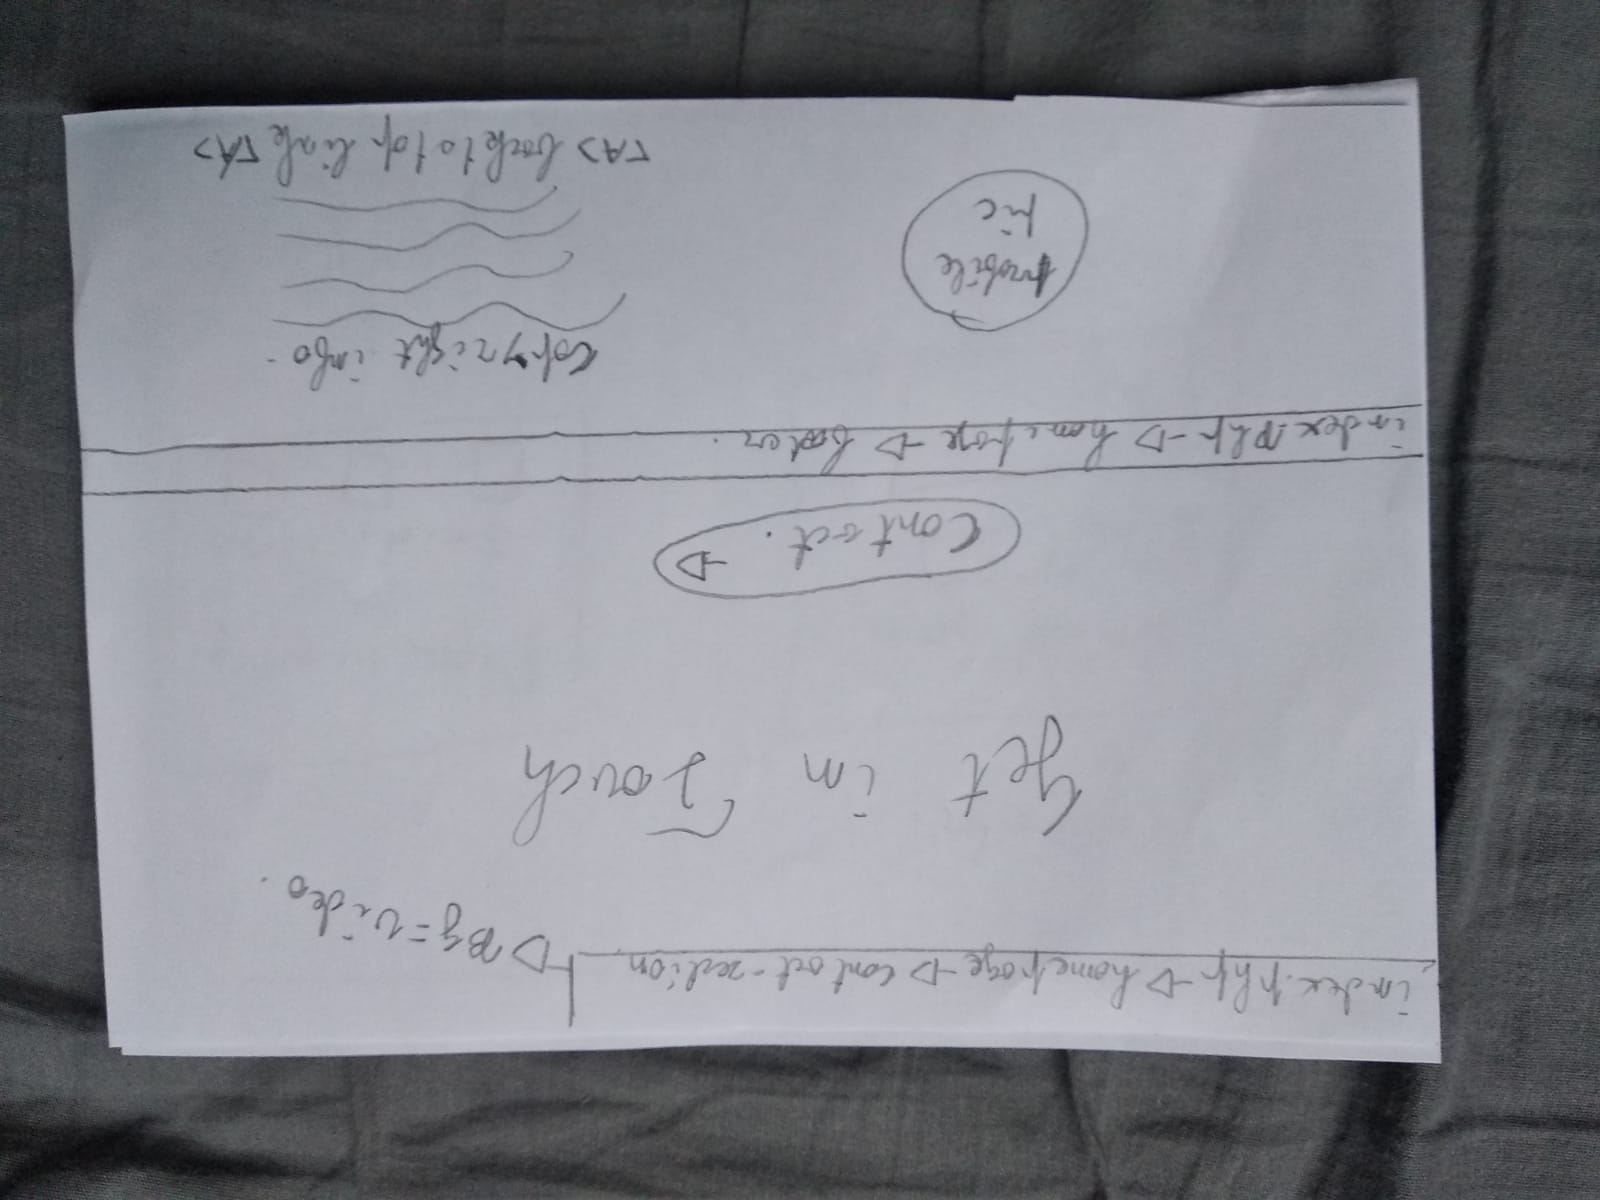 index.php → homepage → contact-section
→ Bg = video.
Get in Touch
Contact. →
index.php → homepage → footer.
copyright info.
profile
pic
<A> back to top link <A>